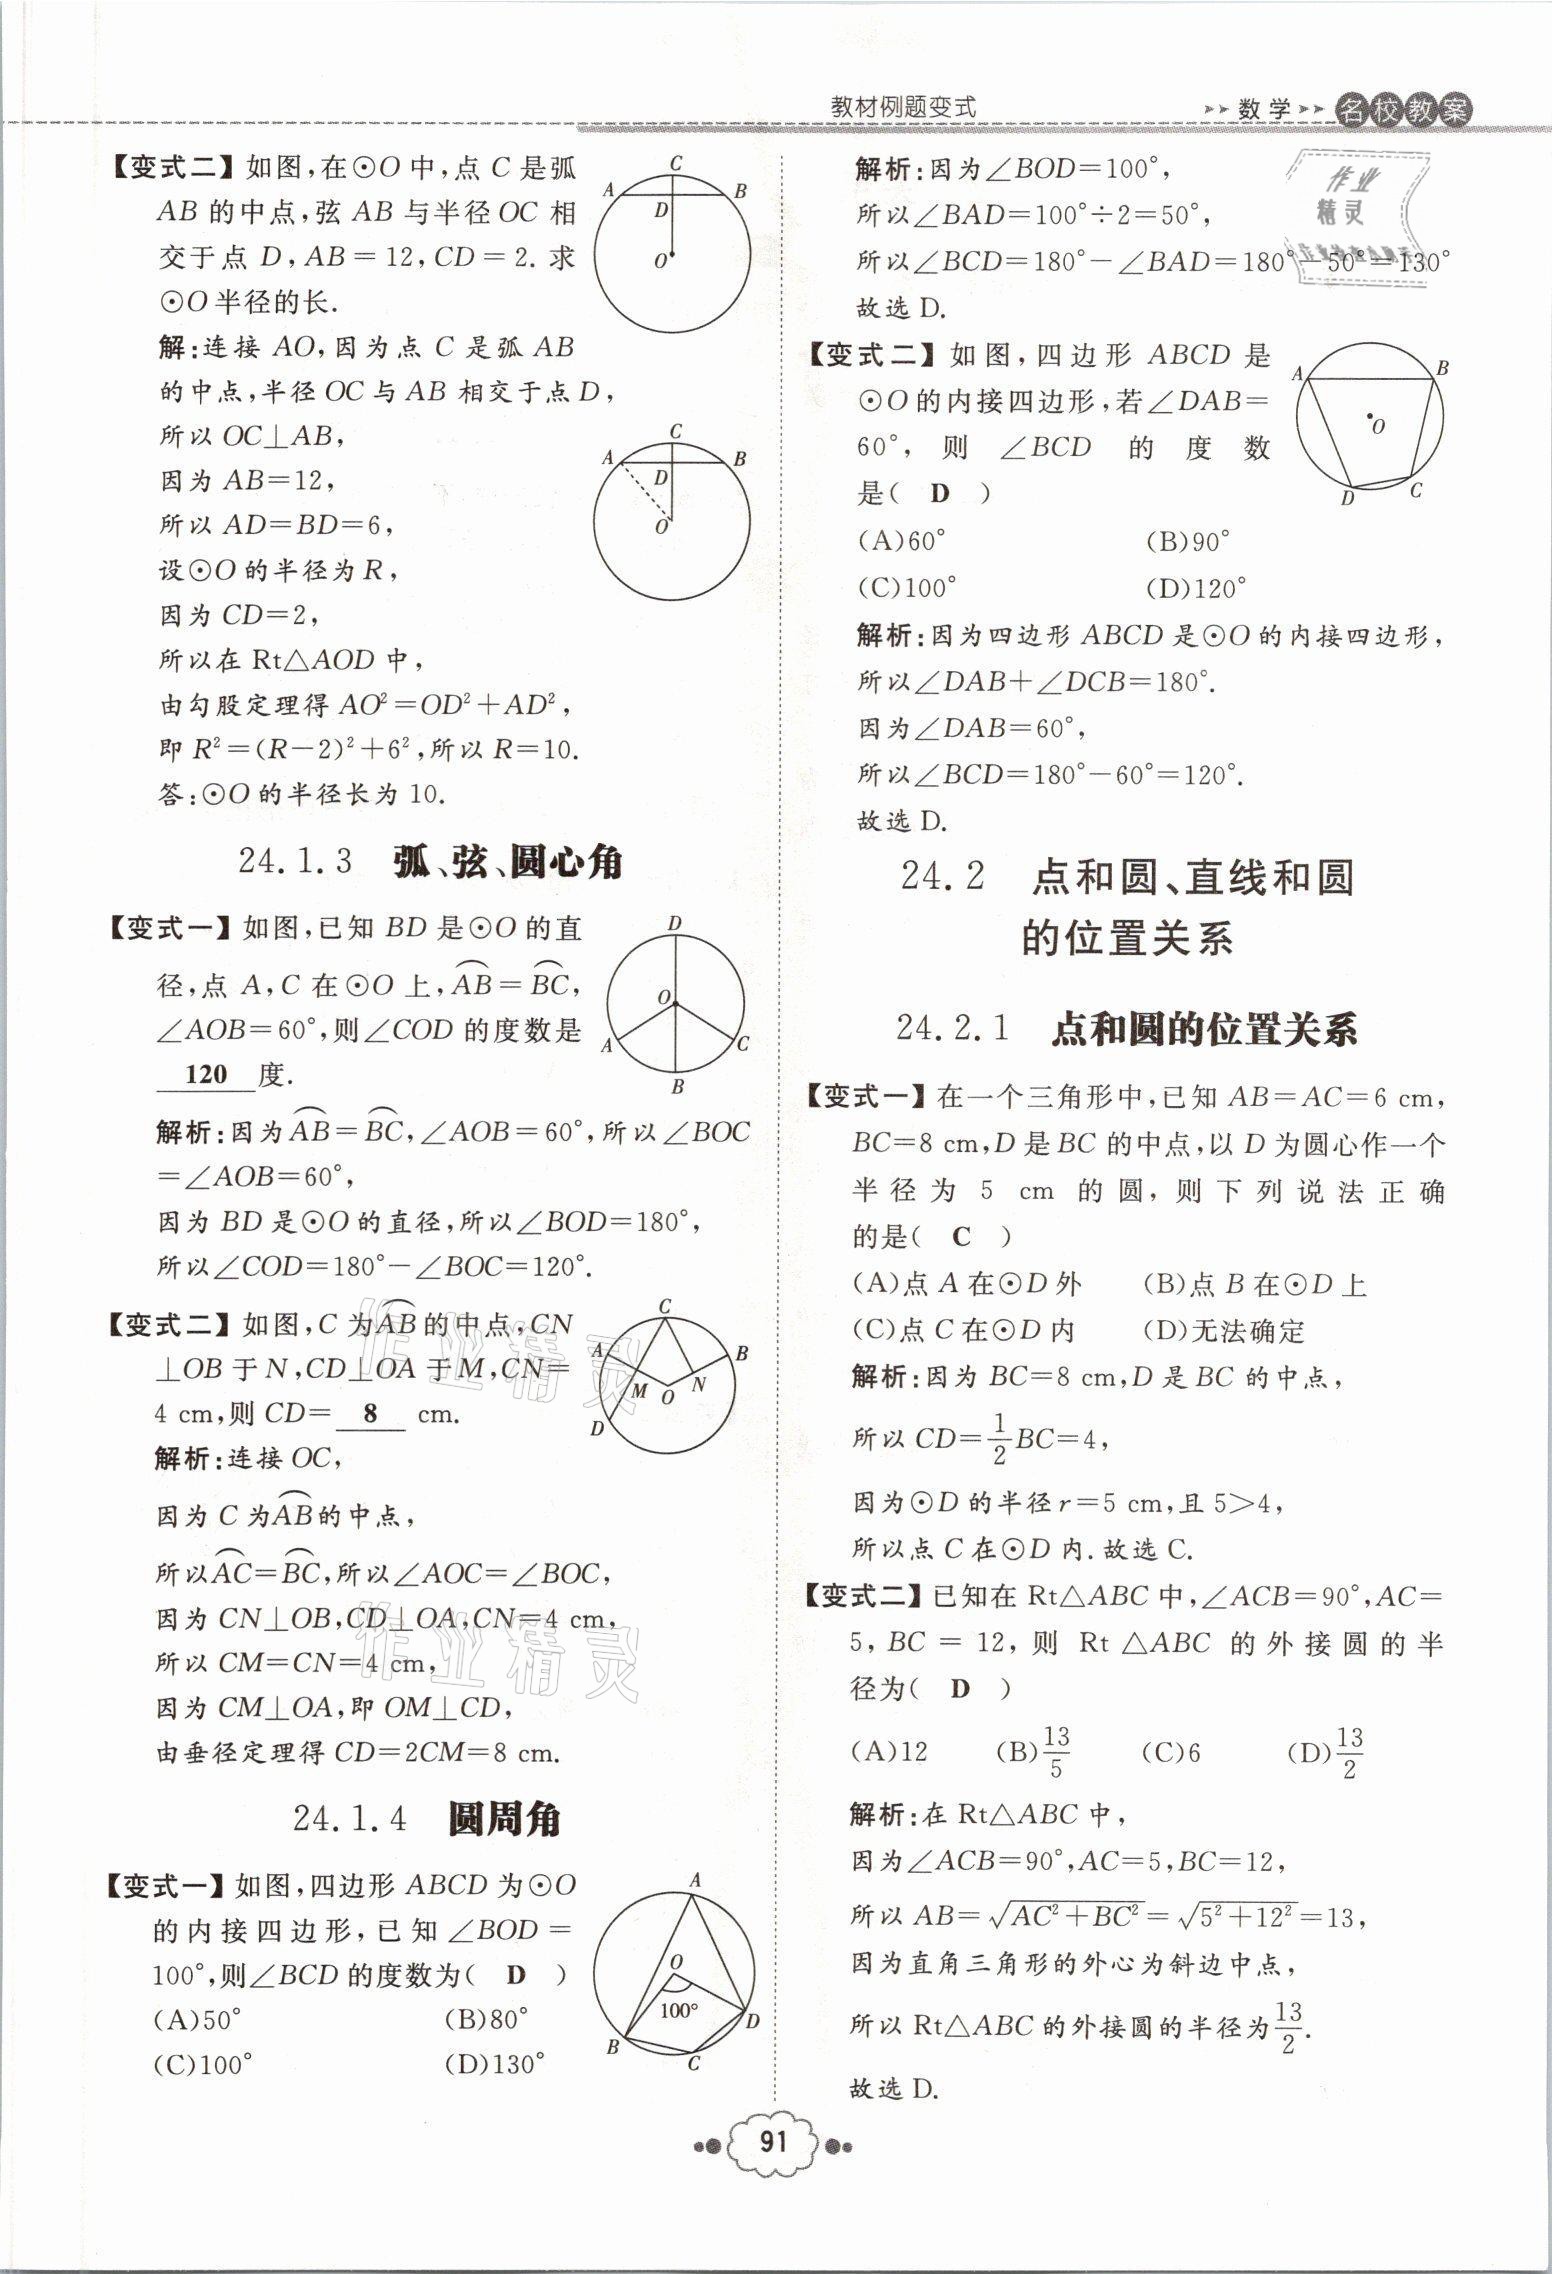 教材例题变式
数学
名校教案
【变式二】如图,在⊙O中,点C是弧
AB的中点,弦AB与半径OC相
交于点D,AB=12,CD=2.求
⊙O半径的长.
解:连接AO,因为点C是弧AB
的中点,半径OC与AB相交于点D,
所以OC⊥AB,
因为AB=12,
所以AD=BD=6,
设⊙O的半径为R,
因为CD=2,
所以在Rt△AOD中,
由勾股定理得AO²=OD²+AD²,
即R²=(R-2)²+6²,所以R=10.
答:⊙O的半径长为10.
C
A
B
D
O
C
A
B
D
O
24.1.3 弧、弦、圆心角
【变式一】如图,已知BD是⊙O的直
径,点A,C在⊙O上,⌒AB=⌒BC,
∠AOB=60°,则∠COD的度数是
120 度.
D
O
A
C
B
解析:因为⌒AB=⌒BC,∠AOB=60°,所以∠BOC
=∠AOB=60°,
因为BD是⊙O的直径,所以∠BOD=180°,
所以∠COD=180°-∠BOC=120°.
【变式二】如图,C为⌒AB的中点,CN
⊥OB于N,CD⊥OA于M,CN=
4 cm,则CD= 8 cm.
C
A
B
M
O
N
D
解析:连接OC,
因为C为⌒AB的中点,
所以⌒AC=⌒BC,所以∠AOC=∠BOC,
因为CN⊥OB,CD⊥OA,CN=4 cm,
所以CM=CN=4 cm,
因为CM⊥OA,即OM⊥CD,
由垂径定理得CD=2CM=8 cm.
作业精灵
作业精灵
24.1.4 圆周角
【变式一】如图,四边形ABCD为⊙O
的内接四边形,已知∠BOD=
100°,则∠BCD的度数为( D )
(A)50° (B)80°
(C)100° (D)130°
A
O
100°
B
D
C
解析:因为∠BOD=100°,
所以∠BAD=100°÷2=50°,
所以∠BCD=180°-∠BAD=180°-50°=130°
故选D.
作业
精灵
【变式二】如图,四边形ABCD是
⊙O的内接四边形,若∠DAB=
60°,则∠BCD的度数
是( D )
(A)60° (B)90°
(C)100° (D)120°
A
B
O
D
C
解析:因为四边形ABCD是⊙O的内接四边形,
所以∠DAB+∠DCB=180°.
因为∠DAB=60°,
所以∠BCD=180°-60°=120°.
故选D.
24.2 点和圆、直线和圆
的位置关系
24.2.1 点和圆的位置关系
【变式一】在一个三角形中,已知AB=AC=6 cm,
BC=8 cm,D是BC的中点,以D为圆心作一个
半径为5 cm的圆,则下列说法正确
的是( C )
(A)点A在⊙D外 (B)点B在⊙D上
(C)点C在⊙D内 (D)无法确定
解析:因为BC=8 cm,D是BC的中点,
所以CD=1/2BC=4,
因为⊙D的半径r=5 cm,且5>4,
所以点C在⊙D内.故选C.
【变式二】已知在Rt△ABC中,∠ACB=90°,AC=
5,BC=12,则Rt△ABC的外接圆的半
径为( D )
(A)12 (B)13/5 (C)6 (D)13/2
解析:在Rt△ABC中,
因为∠ACB=90°,AC=5,BC=12,
所以AB=√(AC²+BC²)=√(5²+12²)=13,
因为直角三角形的外心为斜边中点,
所以Rt△ABC的外接圆的半径为13/2.
故选D.
91